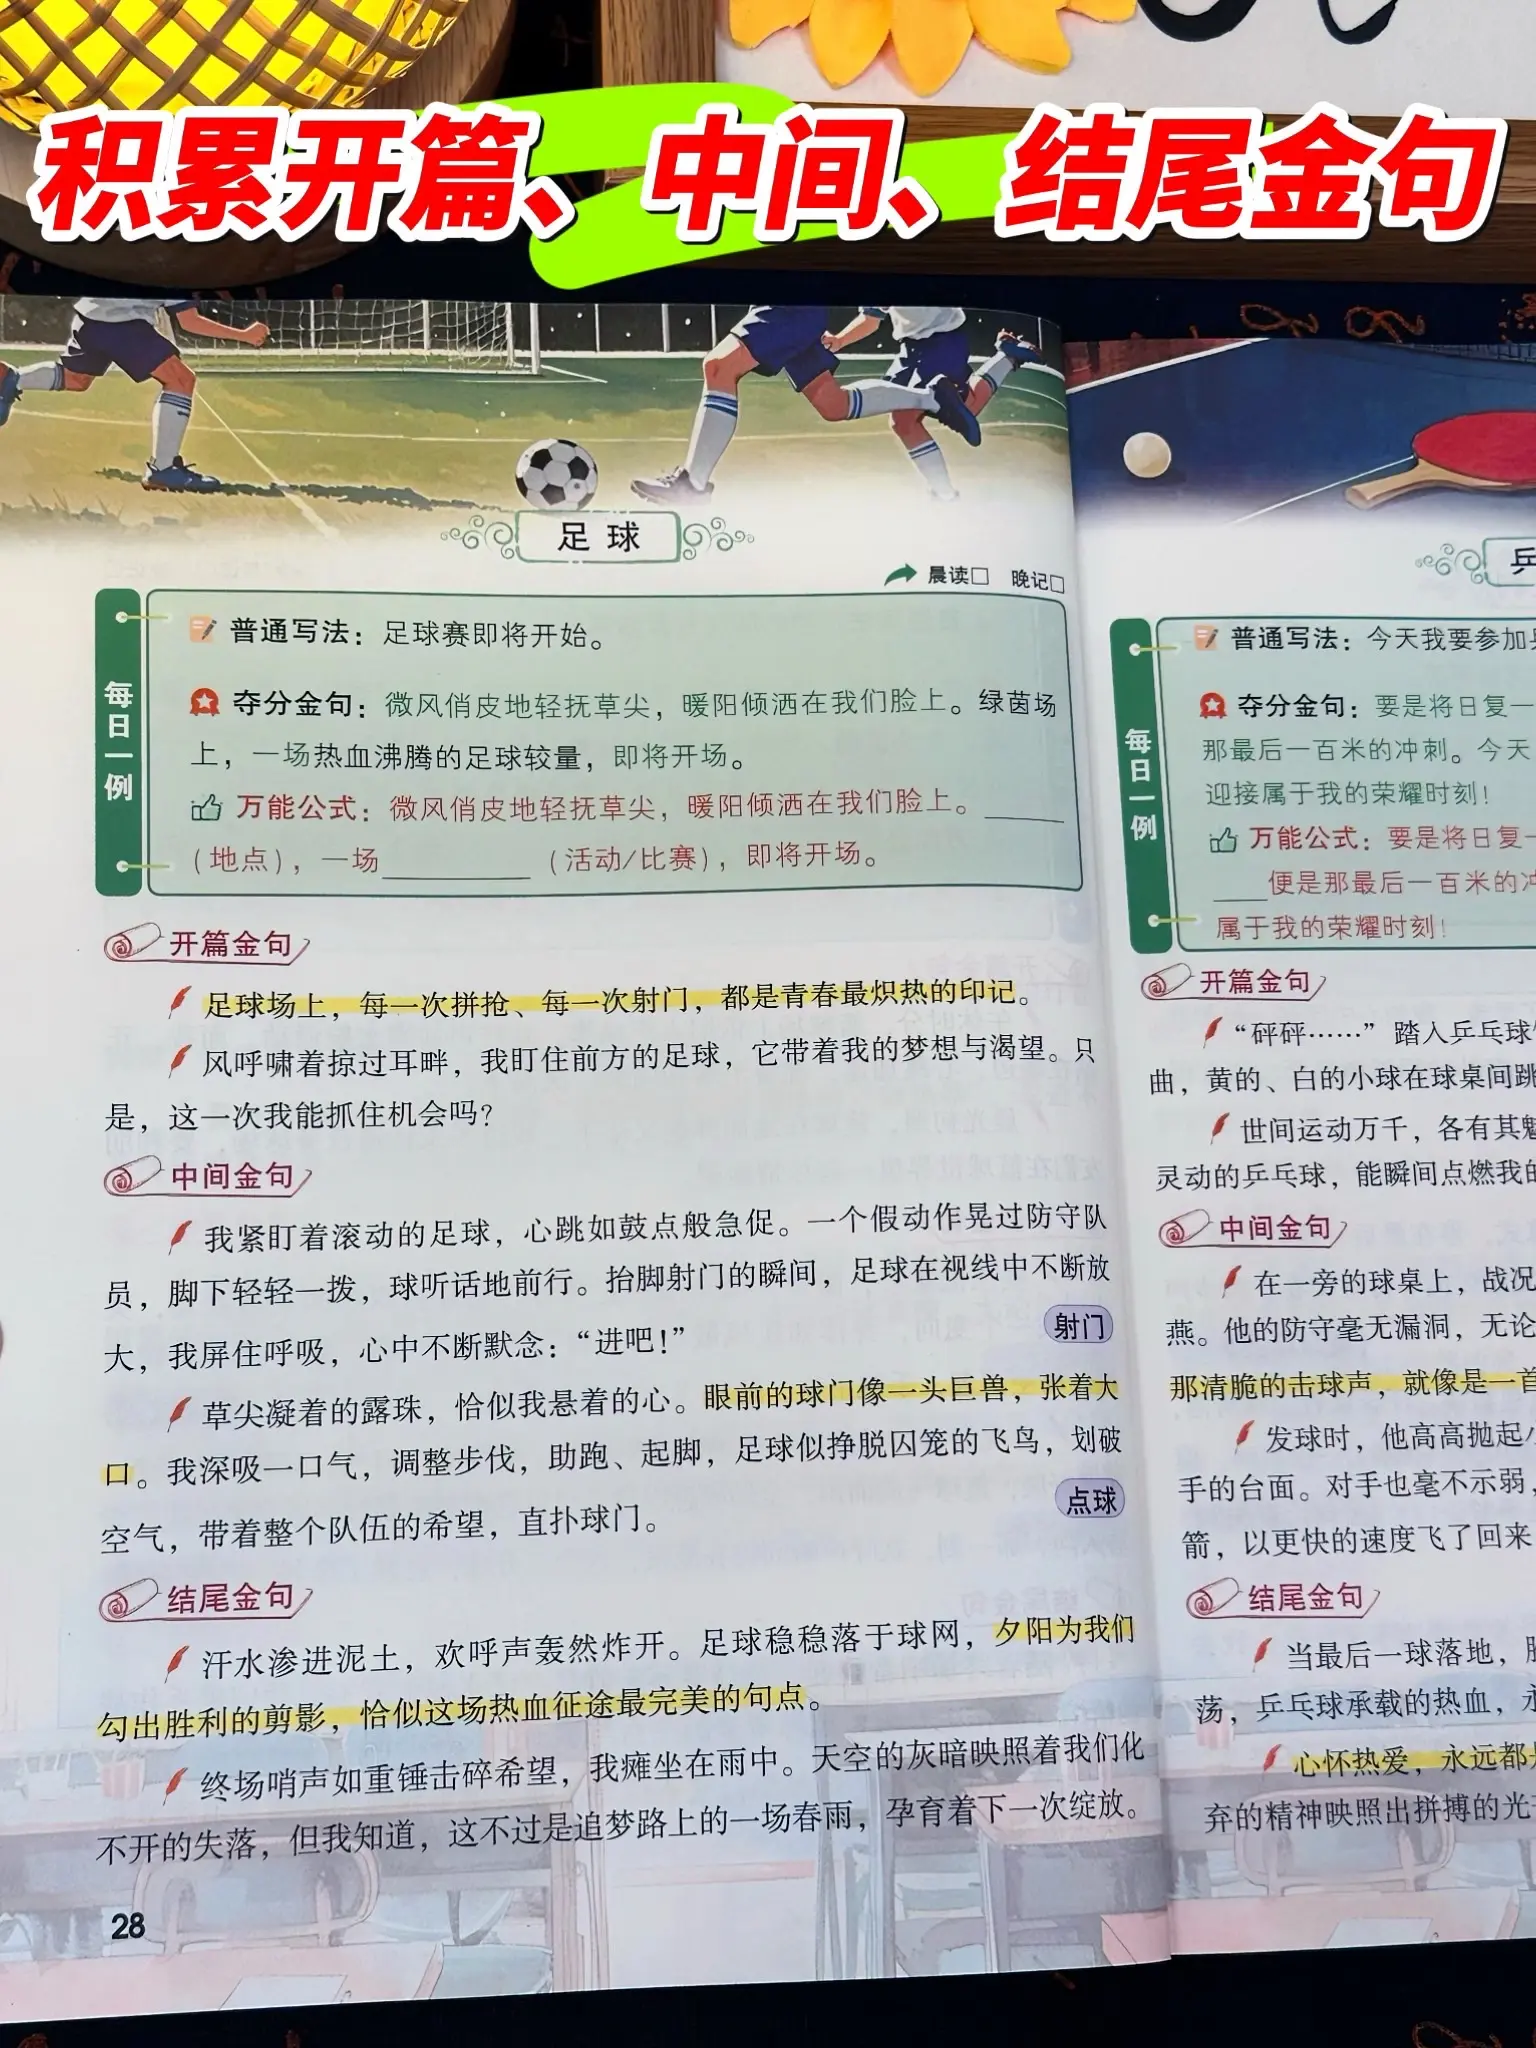 积累开篇、中间、结尾金句
足球
晨读□ 晚记□
每日一例
普通写法：足球赛即将开始。
夺分金句：微风俏皮地轻抚草尖，暖阳倾洒在我们脸上。绿茵场
上，一场热血沸腾的足球较量，即将开场。
万能公式：微风俏皮地轻抚草尖，暖阳倾洒在我们脸上。____
（地点），一场________（活动/比赛），即将开场。
开篇金句
足球场上，每一次拼抢、每一次射门，都是青春最炽热的印记。
风呼啸着掠过耳畔，我盯住前方的足球，它带着我的梦想与渴望。只
是，这一次我能抓住机会吗？
中间金句
我紧盯着滚动的足球，心跳如鼓点般急促。一个假动作晃过防守队
员，脚下轻轻一拨，球听话地前行。抬脚射门的瞬间，足球在视线中不断放
大，我屏住呼吸，心中不断默念：“进吧！”
射门
草尖凝着的露珠，恰似我悬着的心。眼前的球门像一头巨兽，张着大
口。我深吸一口气，调整步伐，助跑、起脚，足球似挣脱囚笼的飞鸟，划破
空气，带着整个队伍的希望，直扑球门。
点球
结尾金句
汗水渗进泥土，欢呼声轰然炸开。足球稳稳落于球网，夕阳为我们
勾出胜利的剪影，恰似这场热血征途最完美的句点。
终场哨声如重锤击碎希望，我瘫坐在雨中。天空的灰暗映照着我们化
不开的失落，但我知道，这不过是追梦路上的一场春雨，孕育着下一次绽放。
28
乒
每日一例
普通写法：今天我要参加
夺分金句：要是将日复一
那最后一百米的冲刺。今天
迎接属于我的荣耀时刻！
万能公式：要是将日复一
____便是那最后一百米的冲
属于我的荣耀时刻！
开篇金句
“砰砰……”踏入乒乓球
曲，黄的、白的小球在球桌间跳
世间运动万千，各有其魅
灵动的乒乓球，能瞬间点燃我的
中间金句
在一旁的球桌上，战况
燕。他的防守毫无漏洞，无论
那清脆的击球声，就像是一首
发球时，他高高抛起小
手的台面。对手也毫不示弱，
箭，以更快的速度飞了回来
结尾金句
当最后一球落地，
荡，乒乓球承载的热血，永
心怀热爱，永远都是
弃的精神映照出拼搏的光